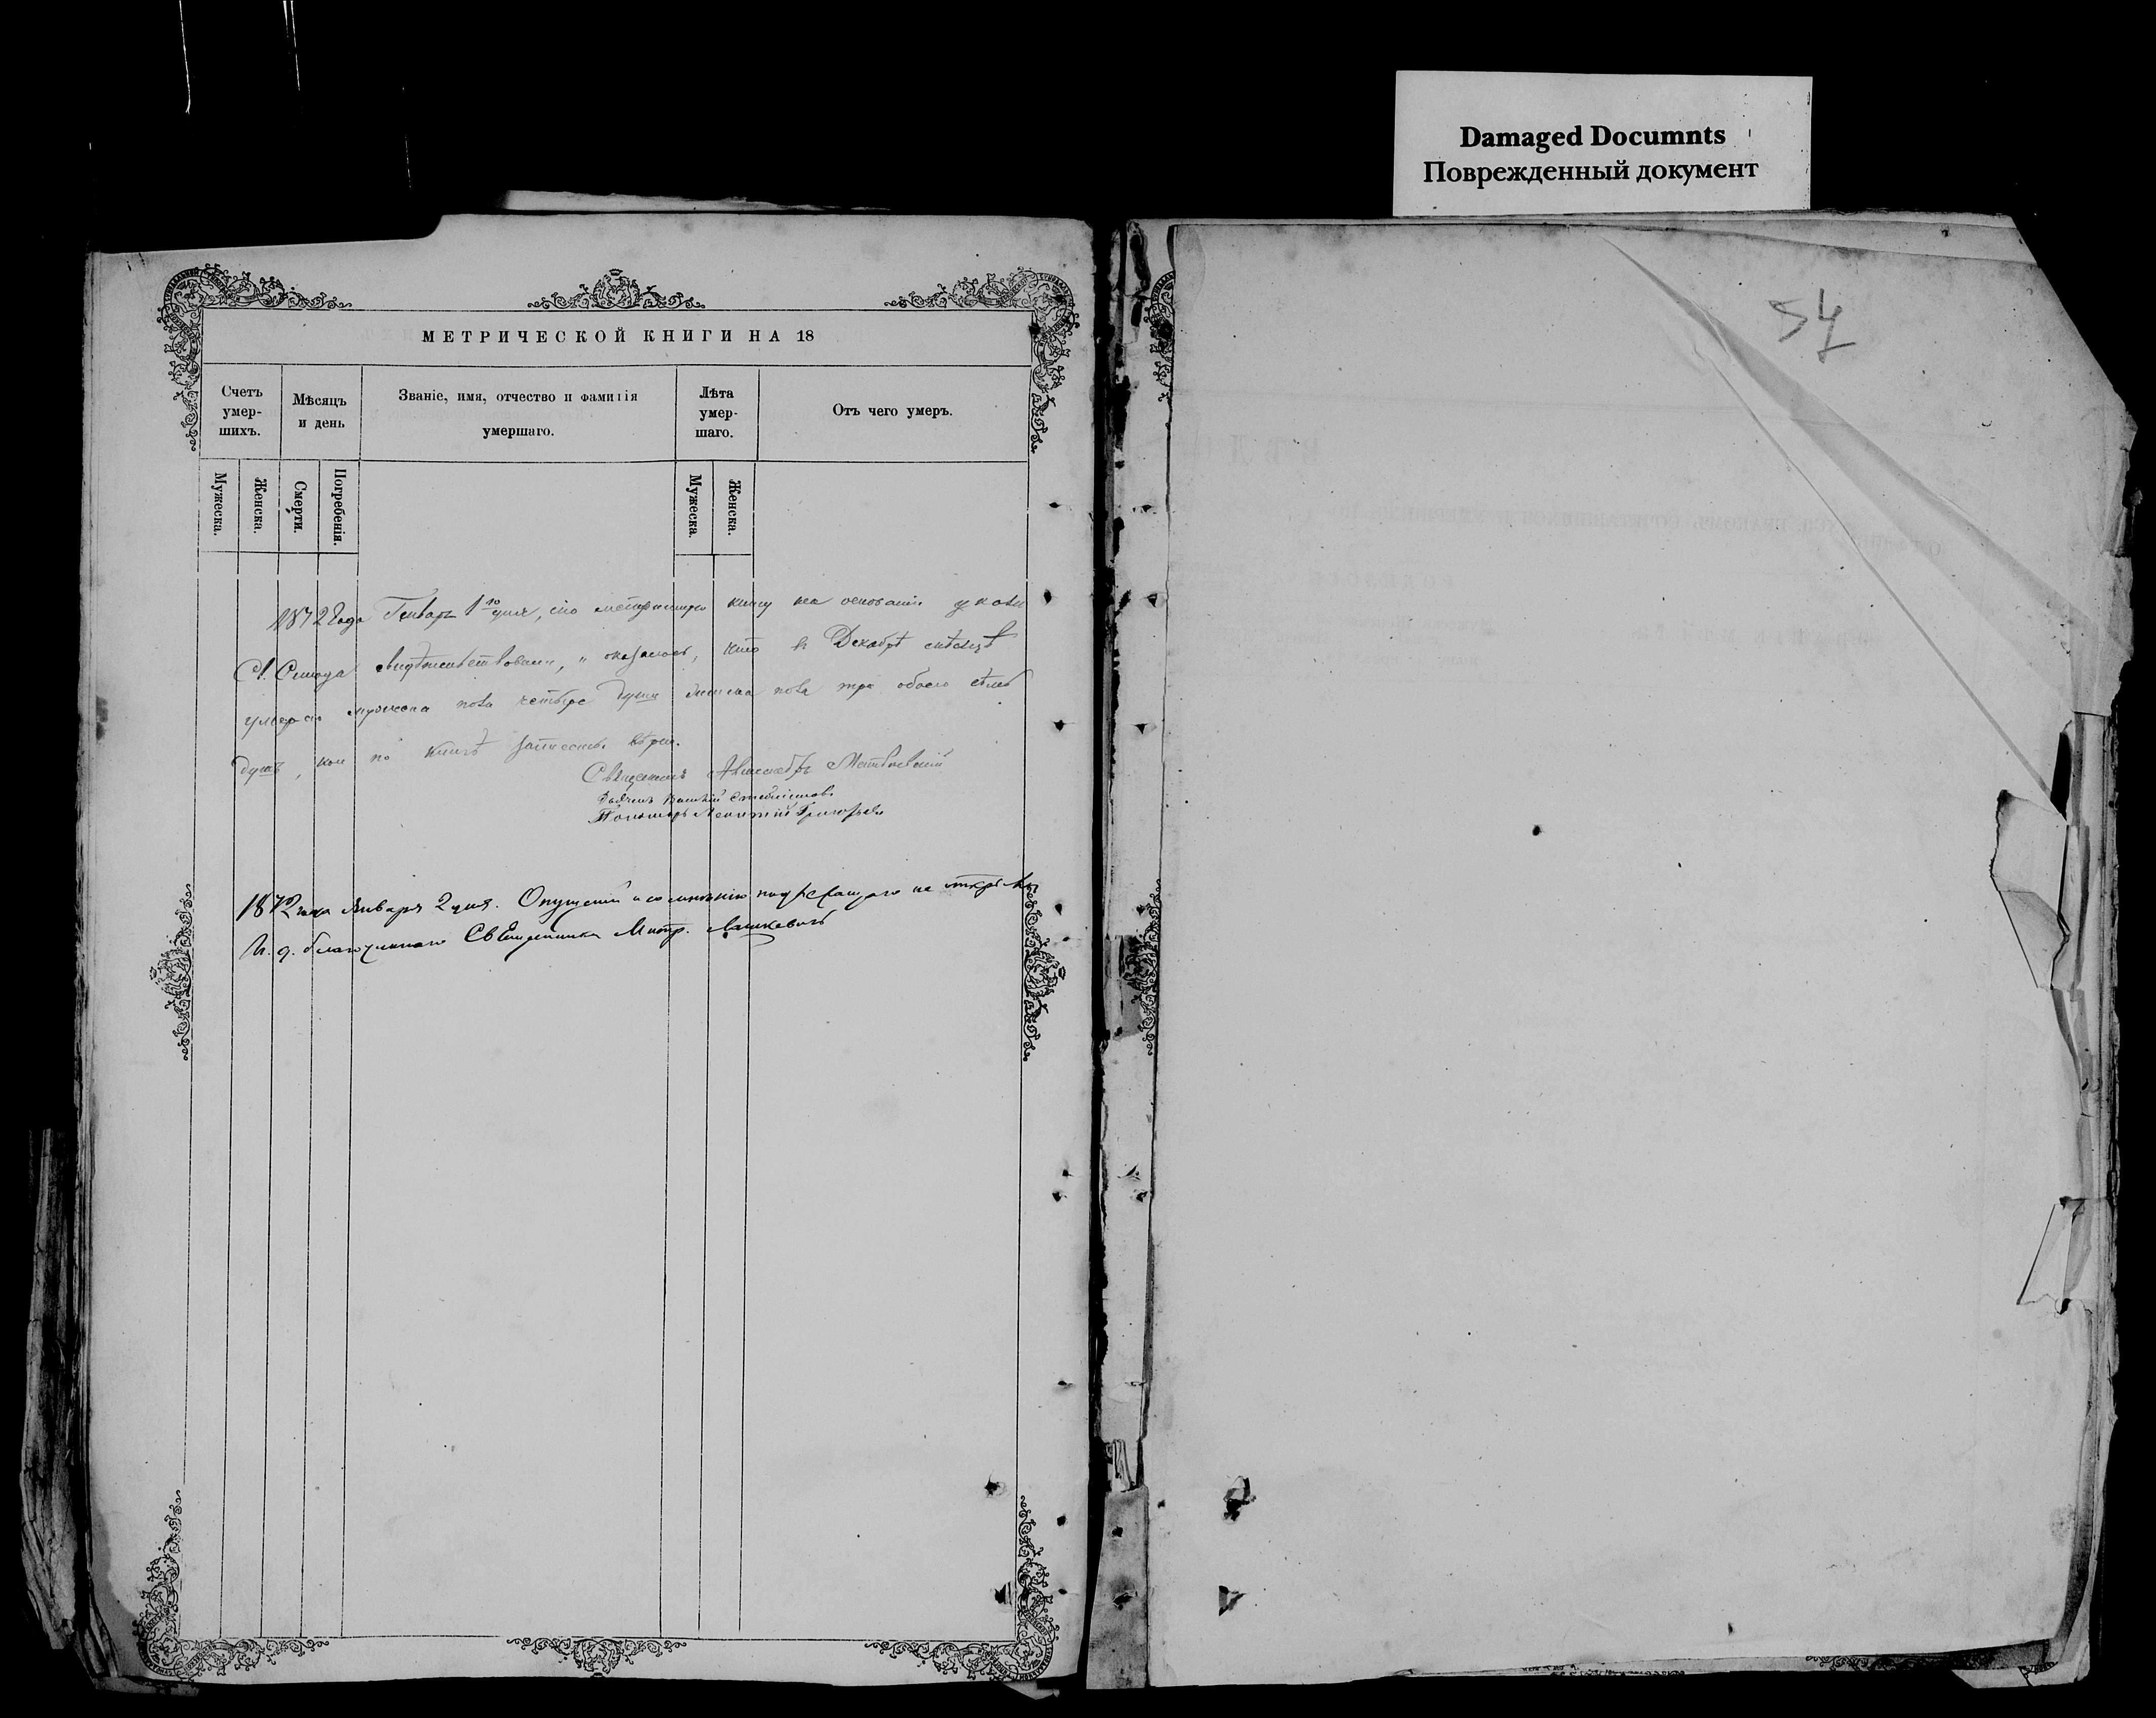 Damaged Documnts
Поврежденный документ
МЕТРИЧЕСКОЙ КНИГИ НА 18
Счетъ умер-шихъ.
Мѣсяцъ и день
Званіе, имя, отчество и фамилія умершаго.
Лѣта умер-шаго.
Отъ чего умеръ.
Мужеска.
Женска.
Смерти.
Погребенія.
Мужеска.
Женска.
1872 Года Генваря 1го дня, сію метрическую книгу на основаніи указа
Св. Синода свидѣтельствовали, и оказалось, что въ Декабрѣ мѣсяцѣ
умерло мужеска пола четыре души женска пола три обоего семь
душъ, кои по книгѣ записаны вѣрно.
Священникъ Александръ
Дьячекъ Василій
Пономарь Григорьевъ
1872 года Января 2 дня.
И. д. благочиннаго Священника Митр. Лашкевичъ
54